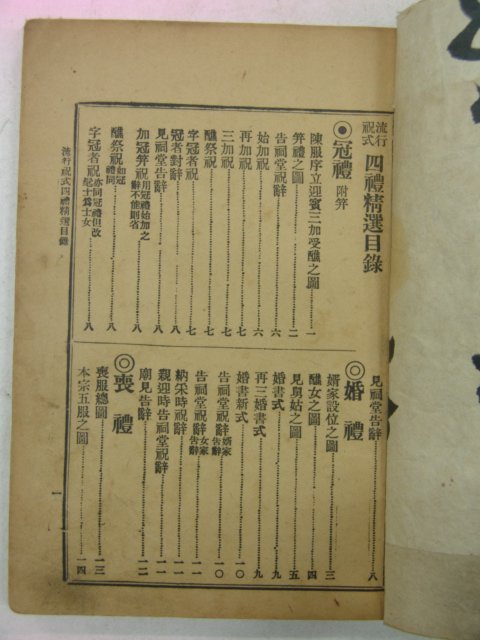 流行祝式 四禮精選目錄
◉冠禮 附笄
陳服序立迎賓三加受醮之圖 一
笄禮之圖 二
告祠堂祝辭 六
始加祝 六
再加祝 七
三加祝 七
醮祝 七
字冠者祝 七
冠者對辭 八
見祠堂告辭 八
加冠笄祝 用冠禮始加之辭不能則省 八
醮祭祝 如冠禮同 八
字冠者祝 亦同冠禮但改髦士爲士女 八
見祠堂告辭 八
◎婚禮
婿家設位之圖 三
醮女之圖 四
見舅姑之圖 五
婚書式 九
再三婚書式 九
婚書新式 一〇
告祠堂祝辭 婿家告辭 一〇
告祠堂祝辭 女家告辭 一一
納采時祝辭 一一
親迎時告祠堂祝辭 一一
廟見告辭 一二
◎喪禮
喪服總圖 一三
本宗五服之圖 一四
流行祝式四禮精選目錄
一